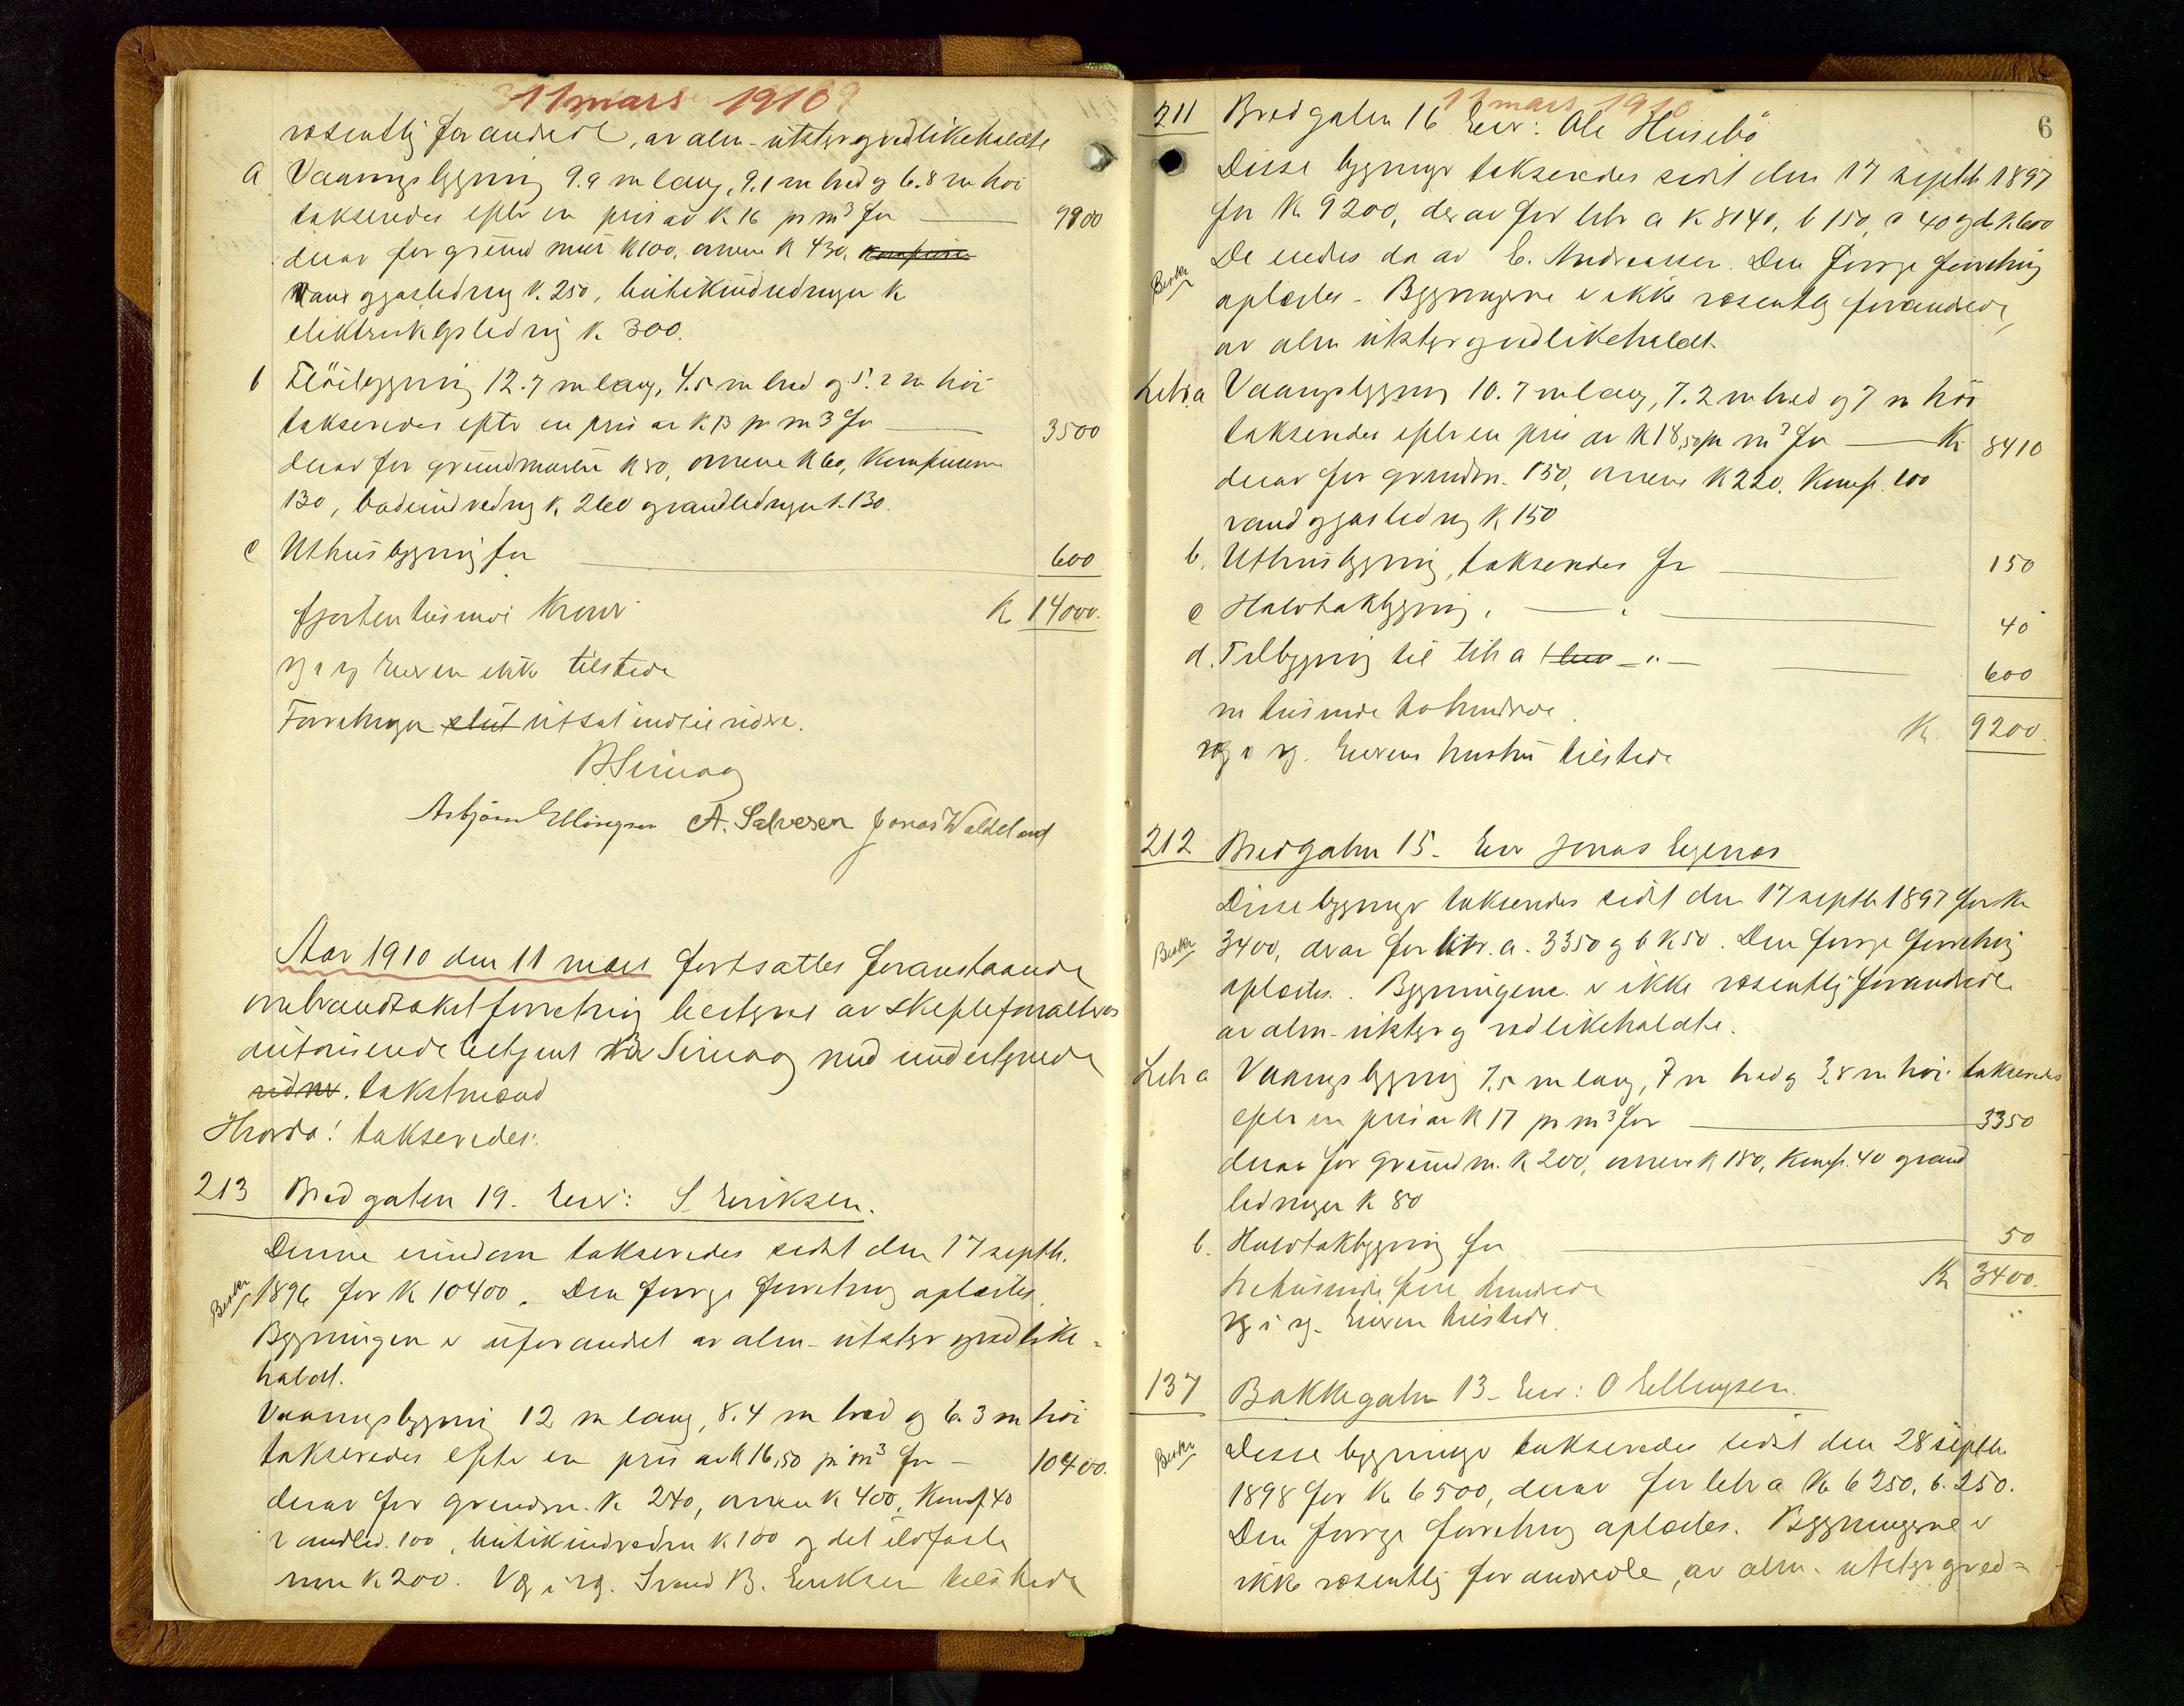 11 mars 1910
væsentlig forandrede, av alm. utstyr og vedlikeholdte
a Vaaningsbygning 9.9 m lang, 9.1 m bred og 6.8 m høi
takseredes efter en pris av K 16 pr m3 for 9900
derav for grundmur K 100, ovnene K 430, komfurene
vand og gasledning K. 250, butikindredninger K
elektriskelysledning K 300.
b Fløibygning 12.7 m lang, 4.5 m bred og 5.2 m høi
takseredes efter en pris av K 13 pr m3 for 3500
derav for grundmuren K 80, ovnene K 60, Komfurene
130, badeindredning K 260 og vandledninger K. 130.
c Uthusbygning for 600
fjortentusinde Kroner K 14000.
Eieren ikke tilstede
Forretningen slut utsat indtil videre.
B Sirnag
Asbjørn Ellingsen A. Salvesen Jonas Waldeland
Aar 1910 den 11 mars fortsattes foranstaaende
ombrandtakstforretning bestyret av
autoriserede betjent Sirnag med undertegnede
vidner. takstmænd
Hvorda! takseredes:
213 Bredgaten 19. Eier: S. Eriksen.
Denne eiendom takseredes sidst den 17 septb.
1896 for K 10400. Den forrige forretning oplæstes.
Bygningen er uforandret av alm. utstyr og vedlike-
holdt.
Vaaningsbygning 12 m lang, 8.4 m bred og 6.3 m høi
takseredes efter en pris av K 16,50 pr m3 for – 10400.
derav for grundm. K 240, ovnene K 400, Komf. 40
vandled. 100, butikindredn. K 100 og det ildfaste
rum K 200. B. Eriksen tilstede
11 mars 1910
6
211 Bredgaten 16 Eier: Ole Husebö
Disse bygninger takseredes sidst den 17 septbr 1897
for K 9200, derav for litr a K 8140, b 150, c 40 og d. K 600
De eiedes da av E. Andreassen. Den forrige forretning
oplæstes. Bygningerne er ikke væsentlig forandrede,
av alm utstyr og vedlikeholdt.
Litr. a Vaaningsbygning 10.7 m lang, 7.2 m bred og 7 m høi
takseredes efter en pris av K 18,50 pr m3 for K. 8410
derav for grundm. 150, ovnene K 220, Komf. 100
vand og gasledning K 150
b. Uthusbygning, takseredes for 150
c Halvtakbygning, " 40
d. Tilbygning til litr a " 600
ni tusinde tohundrede K. 9200.
Eierens hustru tilstede
212 Bredgaten 15. Eier Jonas Egenæs
Disse bygninger takseredes sidst den 17 septbr 1897 for K.
3400, derav for litr. a. 3350 og b K 50. Den forrige forretning
oplæstes. Bygningerne er ikke væsentlig forandrede
av alm. utstyr og vedlikeholdte.
Litr a Vaaningsbygning 7,5 m lang, 7 m bred og 3,8 m høi takseredes
efter en pris av K 17 pr m3 for 3350
derav for grundm. K 200, ovnene K 180, Komf. 40 og vand
ledninger K 80
b. Halvtakbygning for 50
tretusinde fire hundrede K 3400.
Eieren tilstede.
137 Bakkegaten 13. Eier: O Ellingsen.
Disse bygninger takseredes sidst den 28 septbr
1898 for K 6500, derav for litr a K 6250, b. 250.
Den forrige forretning oplæstes. Bygningerne er
ikke væsentlig forandrede, av alm. utstyr og ved-